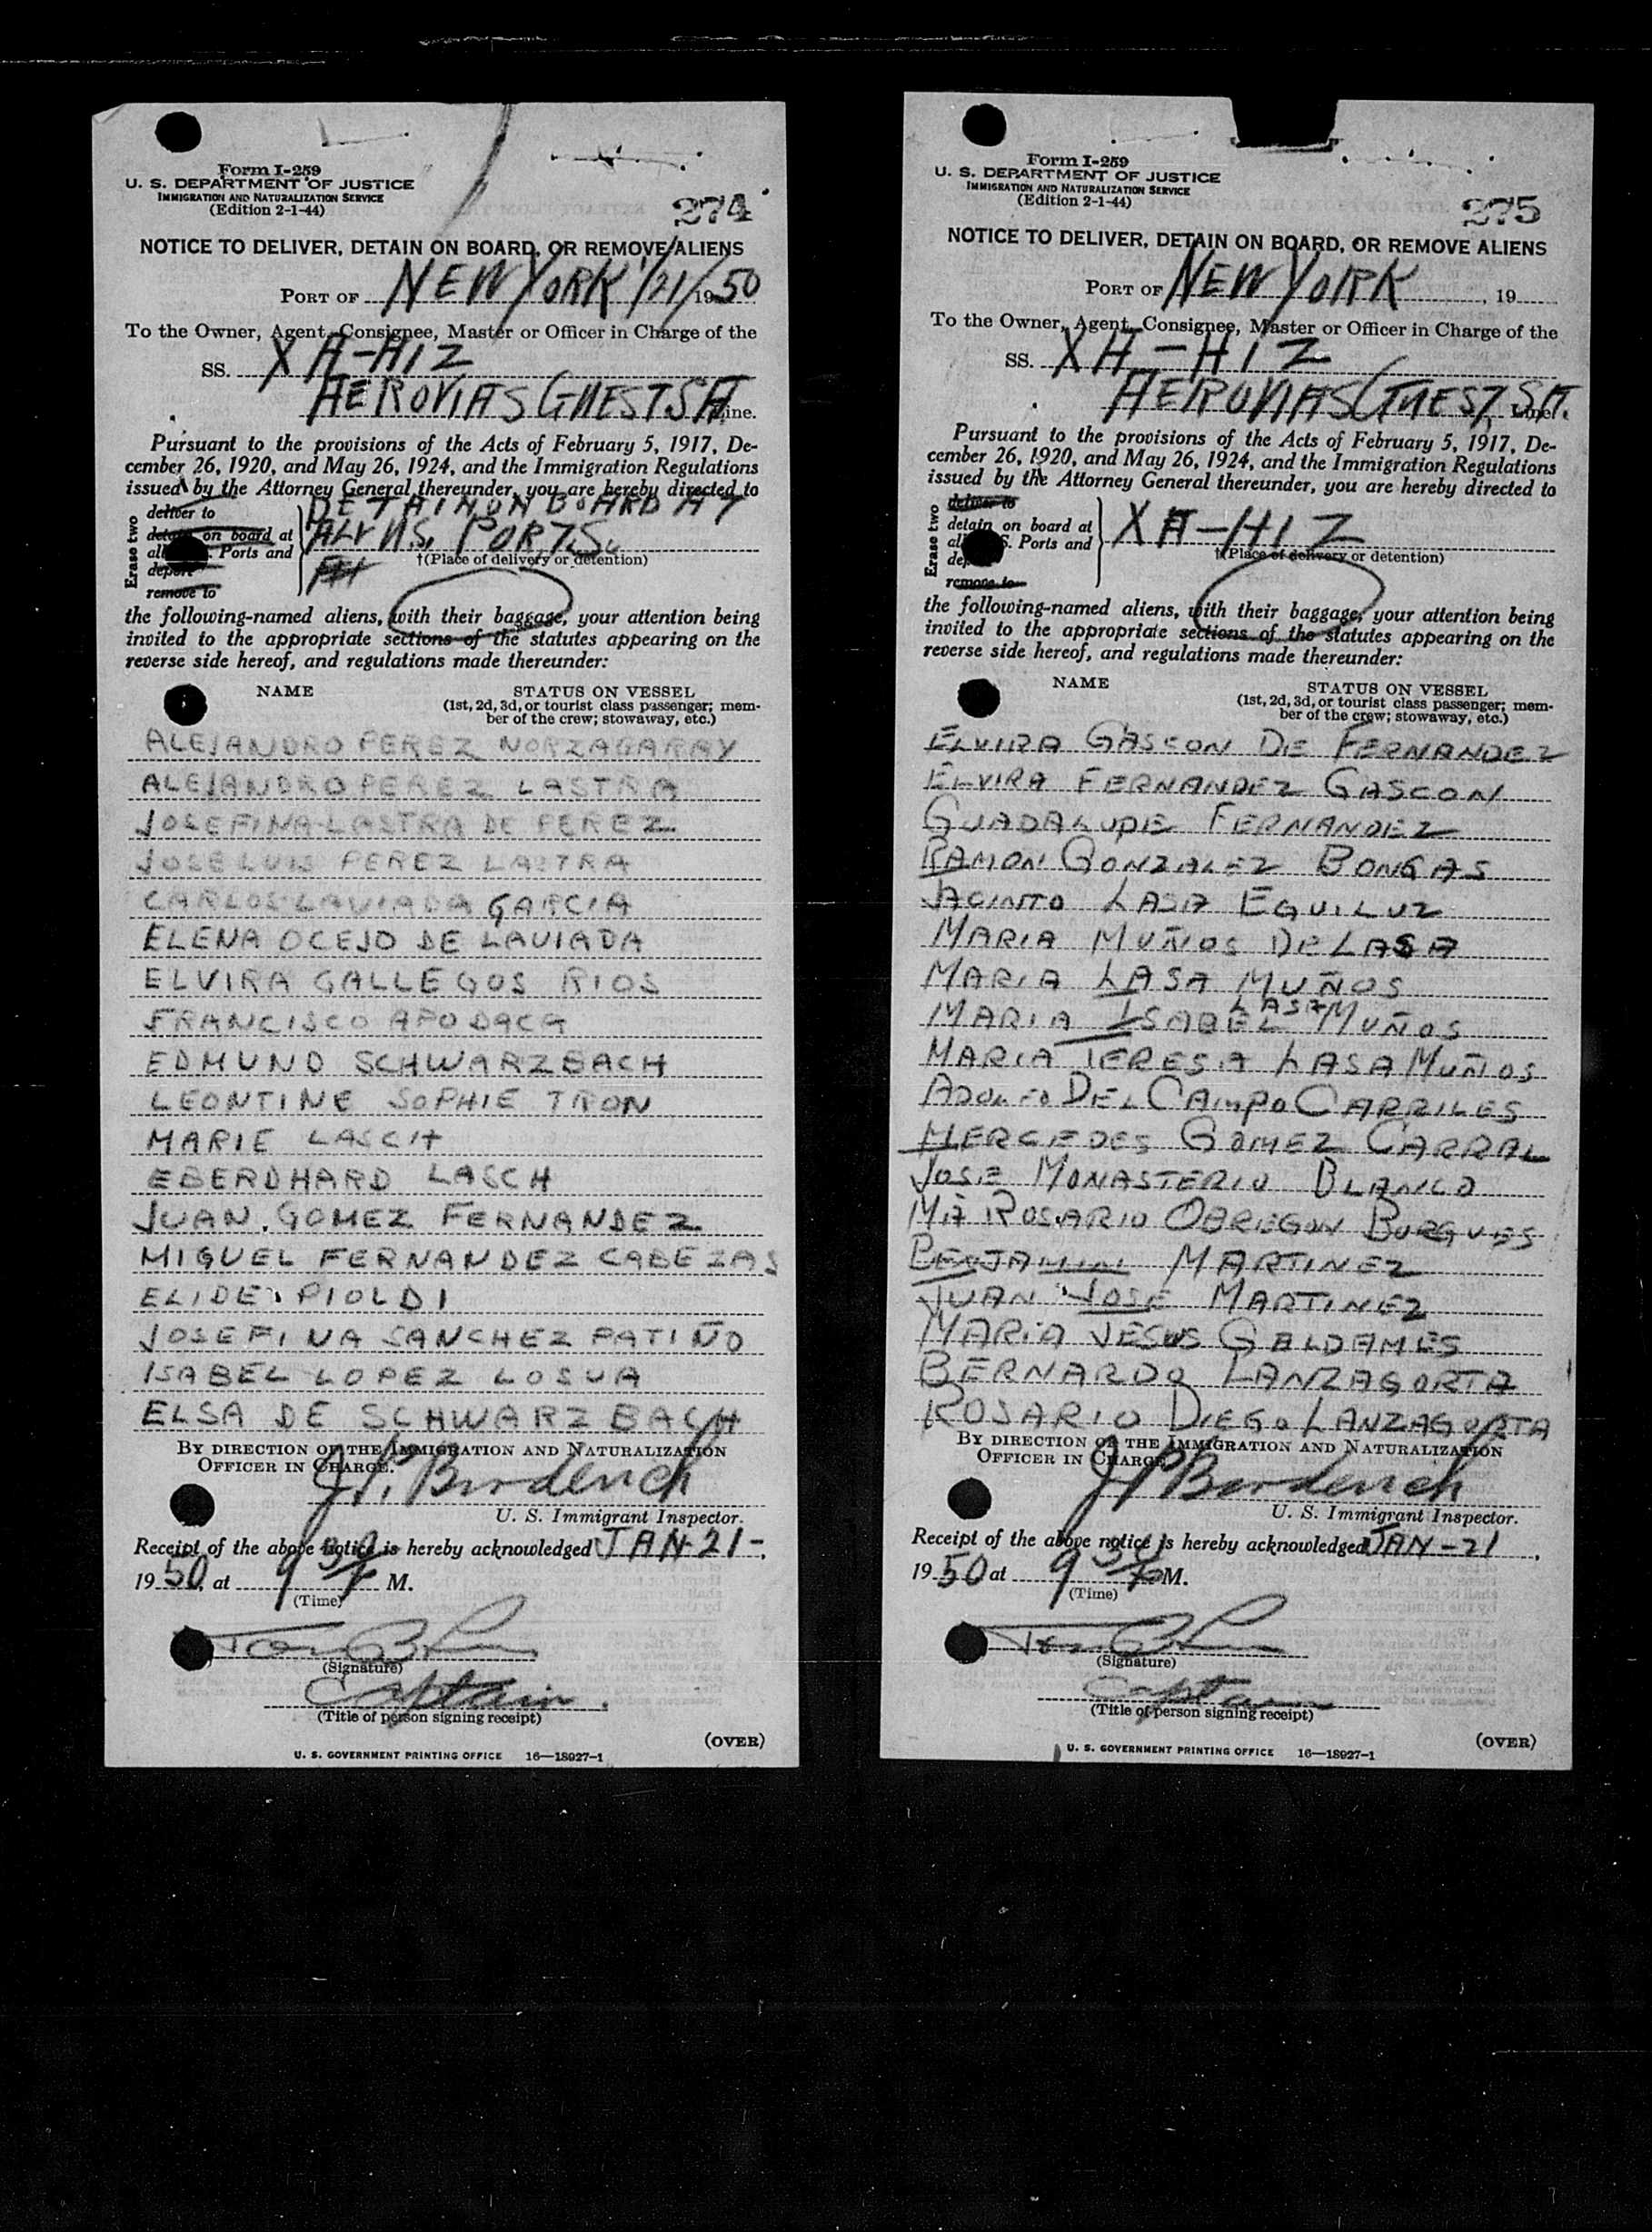 Form I-259
U. S. DEPARTMENT OF JUSTICE
IMMIGRATION AND NATURALIZATION SERVICE
(Edition 2-1-44)
274
NOTICE TO DELIVER, DETAIN ON BOARD, OR REMOVE ALIENS
PORT OF NEW YORK 1/21/1950
To the Owner, Agent, Consignee, Master or Officer in Charge of the
SS. XA-HIZ
AEROVIAS GUEST SA Line.
Pursuant to the provisions of the Acts of February 5, 1917, De-
cember 26, 1920, and May 26, 1924, and the Immigration Regulations
issued by the Attorney General thereunder, you are hereby directed to
Erase two
deliver to
detain on board at
all Ports and
deport
remove to
DETAIN ON BOARD AT
ALL U.S. PORTS.
†(Place of delivery or detention)
the following-named aliens, with their baggage, your attention being
invited to the appropriate sections of the statutes appearing on the
reverse side hereof, and regulations made thereunder:
NAME STATUS ON VESSEL
(1st, 2d, 3d, or tourist class passenger; mem-
ber of the crew; stowaway, etc.)
ALEJANDRO PEREZ NORZAGARAY
ALEJANDRO PEREZ LASTRA
JOSEFINA LASTRA DE PEREZ
JOSE LUIS PEREZ LASTRA
CARLOS LAVIADA GARCIA
ELENA OCEJO DE LAVIADA
ELVIRA GALLEGOS RIOS
FRANCISCO APODACA
EDMUND SCHWARZBACH
LEONTINE SOPHIE TRON
MARIE LASCH
EBERDHARD LASCH
JUAN GOMEZ FERNANDEZ
MIGUEL FERNANDEZ CABEZAS
ELIDE PIOLDI
JOSEFINA SANCHEZ PATIÑO
ISABEL LOPEZ LOSUA
ELSA DE SCHWARZBACH
BY DIRECTION OF THE IMMIGRATION AND NATURALIZATION
OFFICER IN CHARGE.
U. S. Immigrant Inspector.
Receipt of the above notice is hereby acknowledged JAN-21-,
1950, at 9 30 M.
(Time)
(Signature)
Captain
(Title of person signing receipt)
(OVER)
U. S. GOVERNMENT PRINTING OFFICE 16—18927-1
Form I-259
U. S. DEPARTMENT OF JUSTICE
IMMIGRATION AND NATURALIZATION SERVICE
(Edition 2-1-44)
275
NOTICE TO DELIVER, DETAIN ON BOARD, OR REMOVE ALIENS
PORT OF NEW YORK, 19
To the Owner, Agent, Consignee, Master or Officer in Charge of the
SS. XA-HIZ
AEROVIAS GUEST, SA. Line.
Pursuant to the provisions of the Acts of February 5, 1917, De-
cember 26, 1920, and May 26, 1924, and the Immigration Regulations
issued by the Attorney General thereunder, you are hereby directed to
Erase two
deliver to
detain on board at
all S. Ports and
remove to
XA-HIZ
†(Place of delivery or detention)
the following-named aliens, with their baggage, your attention being
invited to the appropriate sections of the statutes appearing on the
reverse side hereof, and regulations made thereunder:
NAME STATUS ON VESSEL
(1st, 2d, 3d, or tourist class passenger; mem-
ber of the crew; stowaway, etc.)
ELVIRA GASCON DE FERNANDEZ
ELVIRA FERNANDEZ GASCON
GUADALUPE FERNANDEZ
RAMON GONZALEZ BONGAS
JACINTO LASA EGUILUZ
MARIA MUÑOS DE LASA
MARIA LASA MUÑOS
MARIA ISABEL LASA MUÑOS
MARIA TERESA LASA MUÑOS
ADOLFO DEL CAMPO CARRILES
MERCEDES GOMEZ CARRAL
JOSE MONASTERIO BLANCO
Mª ROSARIO OBREGON BURGUES
BENJAMIN MARTINEZ
JUAN JOSE MARTINEZ
MARIA JESUS GALDAMES
BERNARDO LANZAGORTA
ROSARIO DIEGO LANZAGORTA
BY DIRECTION OF THE IMMIGRATION AND NATURALIZATION
OFFICER IN CHARGE.
U. S. Immigrant Inspector.
Receipt of the above notice is hereby acknowledged JAN-21,
1950 at 9 30 M.
(Time)
(Signature)
Captain
(Title of person signing receipt)
(OVER)
U. S. GOVERNMENT PRINTING OFFICE 16—18927-1